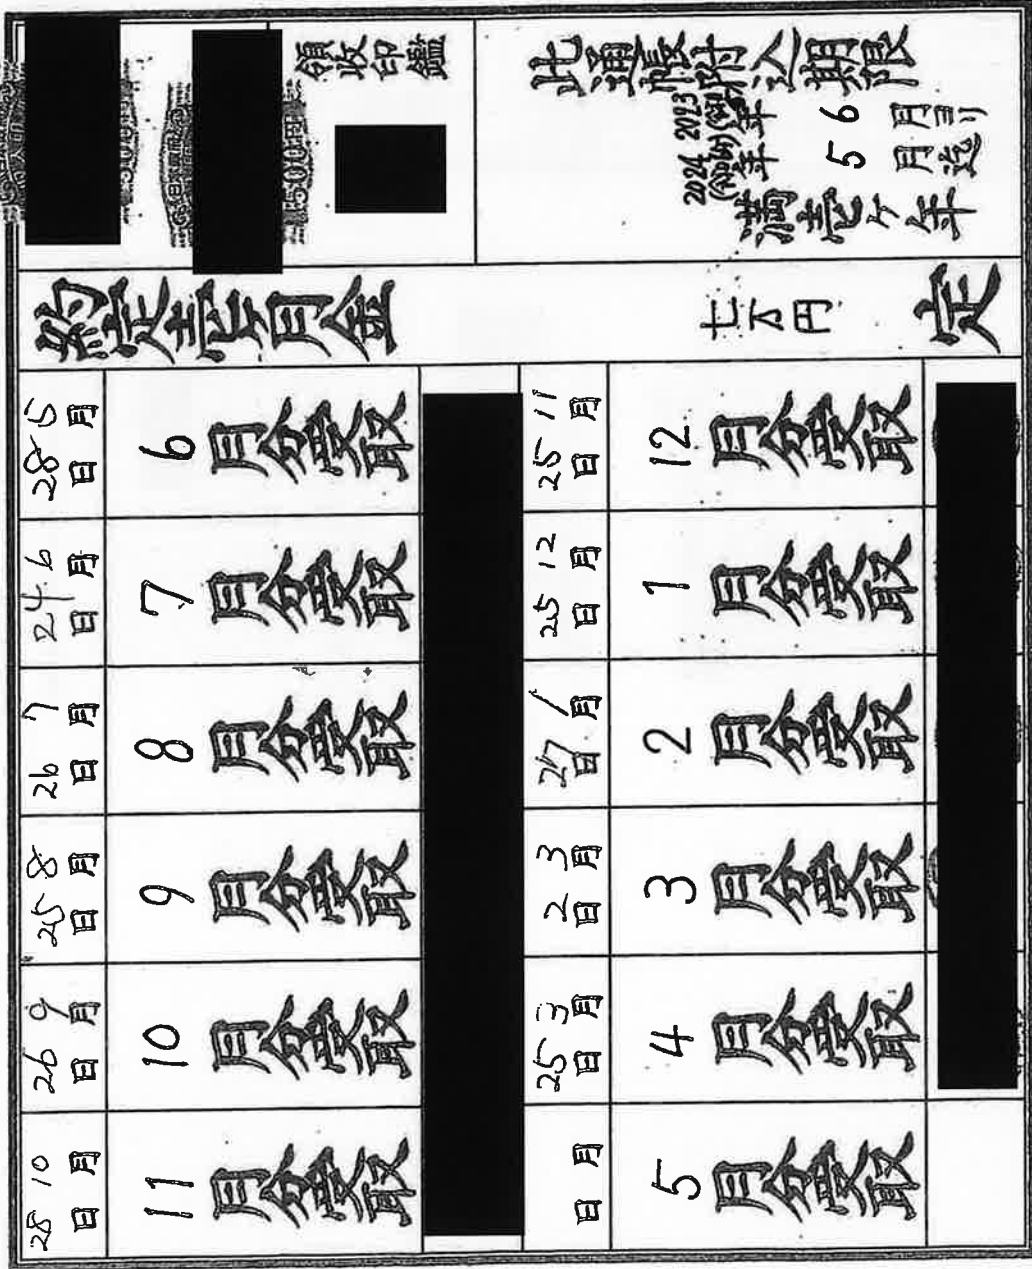 此通帳附込期限
2023(令和5)年6月ヨリ
2024(令和6)年5月迄
満壱ヶ年
領収印鑑
500円
約定壱ヶ月金 七万円 定
5月28日 6月分受取
6月24日 7月分受取
7月26日 8月分受取
8月25日 9月分受取
9月26日 10月分受取
10月28日 11月分受取
11月25日 12月分受取
12月25日 1月分受取
1月27日 2月分受取
3月2日 3月分受取
3月25日 4月分受取
月 日 5月分受取